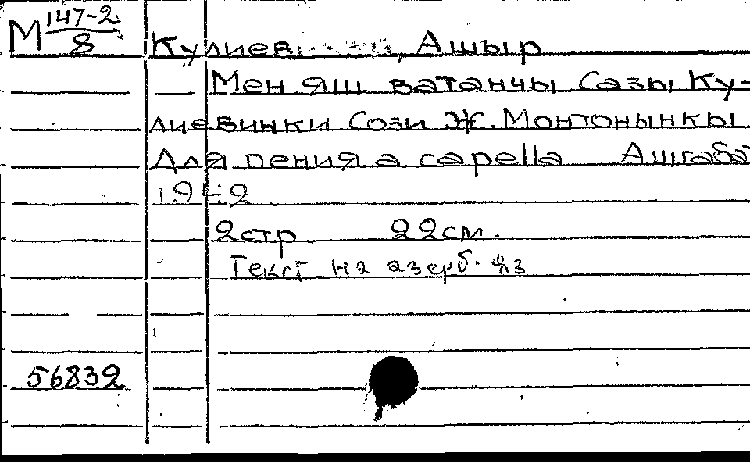 М 147-2/8
Кулиев, Ашыр
Мен яш ватанчы Сазы Ку-
лиевинки Сози Ж. Монтонынкы
Для пения a capella Ашгаба
1942
2стр 22см.
Текст на азерб. яз
56832